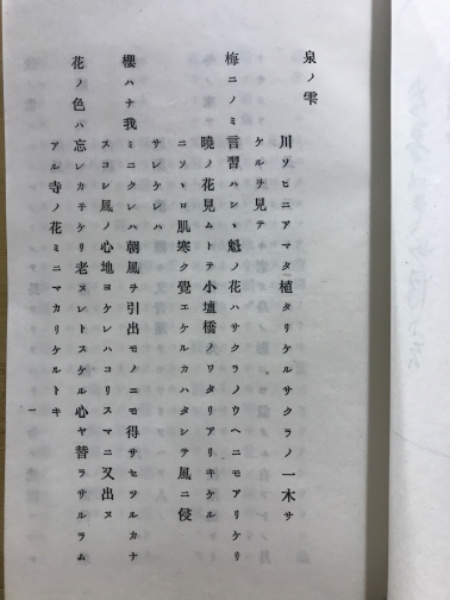 泉ノ雫
川ソヒニアマタ植タリケルサクラノ一木サ
ケルヲ見テ
梅ニノミ言習ハシヽ魁ノ花ハサクラノウヘニモアリケリ
曉ノ花見ムトテ小壚橋ノワタリアリキケル
ニソヽロ肌寒ク覺エケルカハタシテ風ニ侵
サレケレハ
櫻ハナ我ミニクレハ朝風ヲ引出モノニモ得サセツルカナ
スコシ風ノ心地ヨケレハコリスマニ又出ヌ
花ノ色ハ忘レカモケリ老ヌレトスケル心ヤ替ラサルラム
アル寺ノ花ミニマカリケルトキ
一